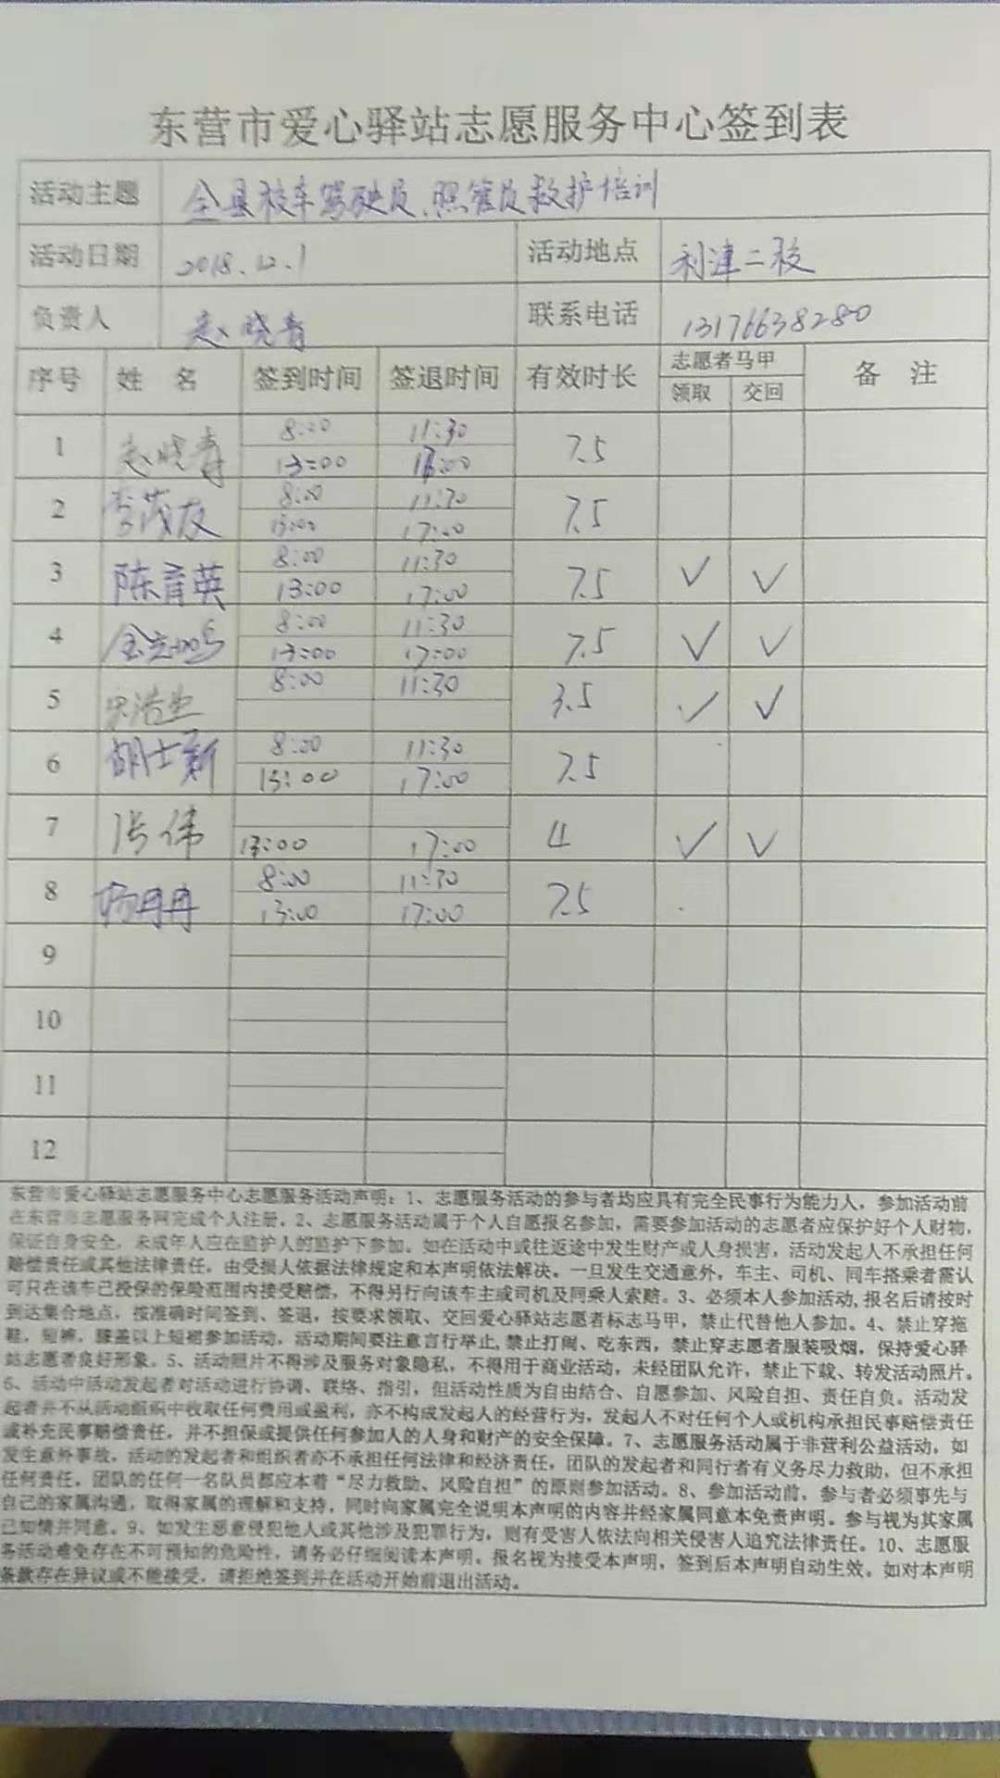 东营市爱心驿站志愿服务中心签到表
活动主题 全县校车驾驶员、照管员救护培训
活动日期 2018.12.1 活动地点 利津二校
负责人 赵晓青 联系电话 13176638280
序号 姓 名 签到时间 签退时间 有效时长 志愿者马甲 备 注
领取 交回
1 赵晓青 8:00 11:30 7.5
13:00 17:00
2 李茂友 8:00 11:30 7.5
13:00 17:00
3 陈育英 8:00 11:30 7.5 ✓ ✓
13:00 17:00
4 8:00 11:30 7.5 ✓ ✓
13:00 17:00
5 8:00 11:30 3.5 ✓ ✓
6 胡士新 8:00 11:30 7.5
13:00 17:00
7 张伟 13:00 17:00 4 ✓ ✓
8 杨冉冉 8:00 11:30 7.5
13:00 17:00
9
10
11
12
东营市爱心驿站志愿服务中心志愿服务活动声明：1、志愿服务活动的参与者均应具有完全民事行为能力人，参加活动前
在东营市志愿服务网完成个人注册。2、志愿服务活动属于个人自愿报名参加，需要参加活动的志愿者应保护好个人财物，
保证自身安全，未成年人应在监护人的监护下参加。如在活动中或往返途中发生财产或人身损害，活动发起人不承担任何
赔偿责任或其他法律责任，由受损人依据法律规定和本声明依法解决。一旦发生交通意外，车主、司机、同车搭乘者需认
可只在该车已投保的保险范围内接受赔偿，不得另行向该车主或司机及同乘人索赔。3、必须本人参加活动，报名后请按时
到达集合地点，按准确时间签到、签退，按要求领取、交回爱心驿站志愿者标志马甲，禁止代替他人参加。4、禁止穿拖
鞋，短裤，膝盖以上短裙参加活动，活动期间要注意言行举止，禁止打闹、吃东西，禁止穿志愿者服装吸烟，保持爱心驿
站志愿者良好形象。5、活动照片不得涉及服务对象隐私，不得用于商业活动，未经团队允许，禁止下载、转发活动照片。
6、活动中活动发起者对活动进行协调、联络、指引，但活动性质为自由结合、自愿参加、风险自担、责任自负。活动发
起者并不从活动组织中收取任何费用或盈利，亦不构成发起人的经营行为，发起人不对任何个人或机构承担民事赔偿责任
或补充民事赔偿责任，并不担保或提供任何参加人的人身和财产的安全保障。7、志愿服务活动属于非营利公益活动，如
发生意外事故，活动的发起者和组织者亦不承担任何法律和经济责任，团队的发起者和同行者有义务尽力救助，但不承担
任何责任，团队的任何一名队员都应本着“尽力救助、风险自担”的原则参加活动。8、参加活动前，参与者必须事先与
自己的家属沟通，取得家属的理解和支持，同时向家属完全说明本声明的内容并经家属同意本免责声明。参与视为其家属
已知情并同意。9、如发生恶意侵犯他人或其他涉及犯罪行为，则有受害人依法向相关侵害人追究法律责任。10、志愿服
务活动难免存在不可预知的危险性，请务必仔细阅读本声明。报名视为接受本声明，签到后本声明自动生效。如对本声明
条款存在异议或不能接受，请拒绝签到并在活动开始前退出活动。